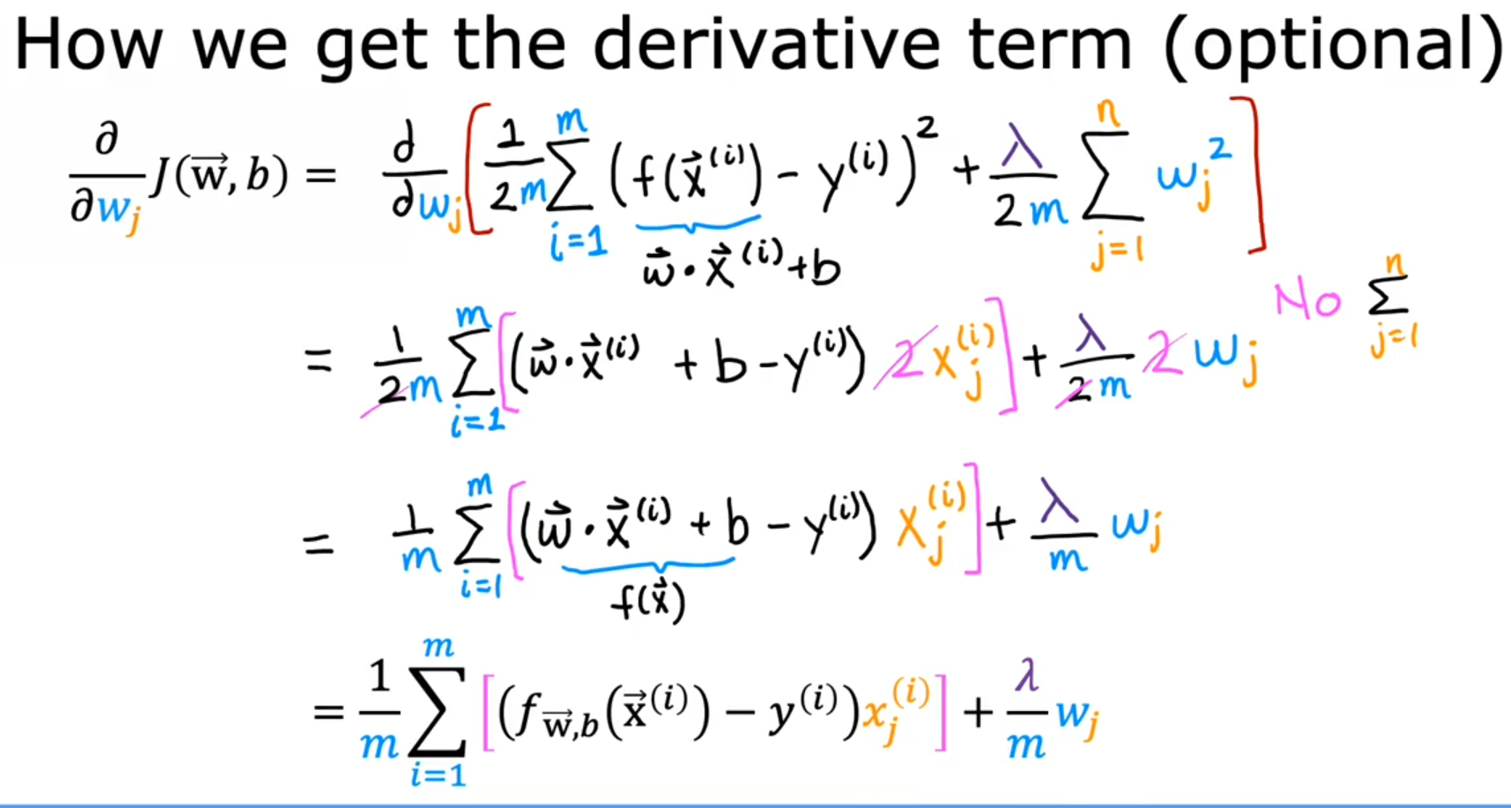 How we get the derivative term (optional)
∂/∂wⱼ J(w⃗, b) = d/dwⱼ [ 1/2m ∑ᵢ₌₁ᵐ (f(x⃗⁽ⁱ⁾) - y⁽ⁱ⁾)² + λ/2m ∑ⱼ₌₁ⁿ wⱼ² ]
w⃗ · x⃗⁽ⁱ⁾ + b
No ∑ⱼ₌₁ⁿ
= 1/2m ∑ᵢ₌₁ᵐ [ (w⃗ · x⃗⁽ⁱ⁾ + b - y⁽ⁱ⁾) 2 xⱼ⁽ⁱ⁾ ] + λ/2m 2 wⱼ
= 1/m ∑ᵢ₌₁ᵐ [ (w⃗ · x⃗⁽ⁱ⁾ + b - y⁽ⁱ⁾) xⱼ⁽ⁱ⁾ ] + λ/m wⱼ
f(x⃗)
= 1/m ∑ᵢ₌₁ᵐ [ (f_w⃗,b(x⃗⁽ⁱ⁾) − y⁽ⁱ⁾) xⱼ⁽ⁱ⁾ ] + λ/m wⱼ